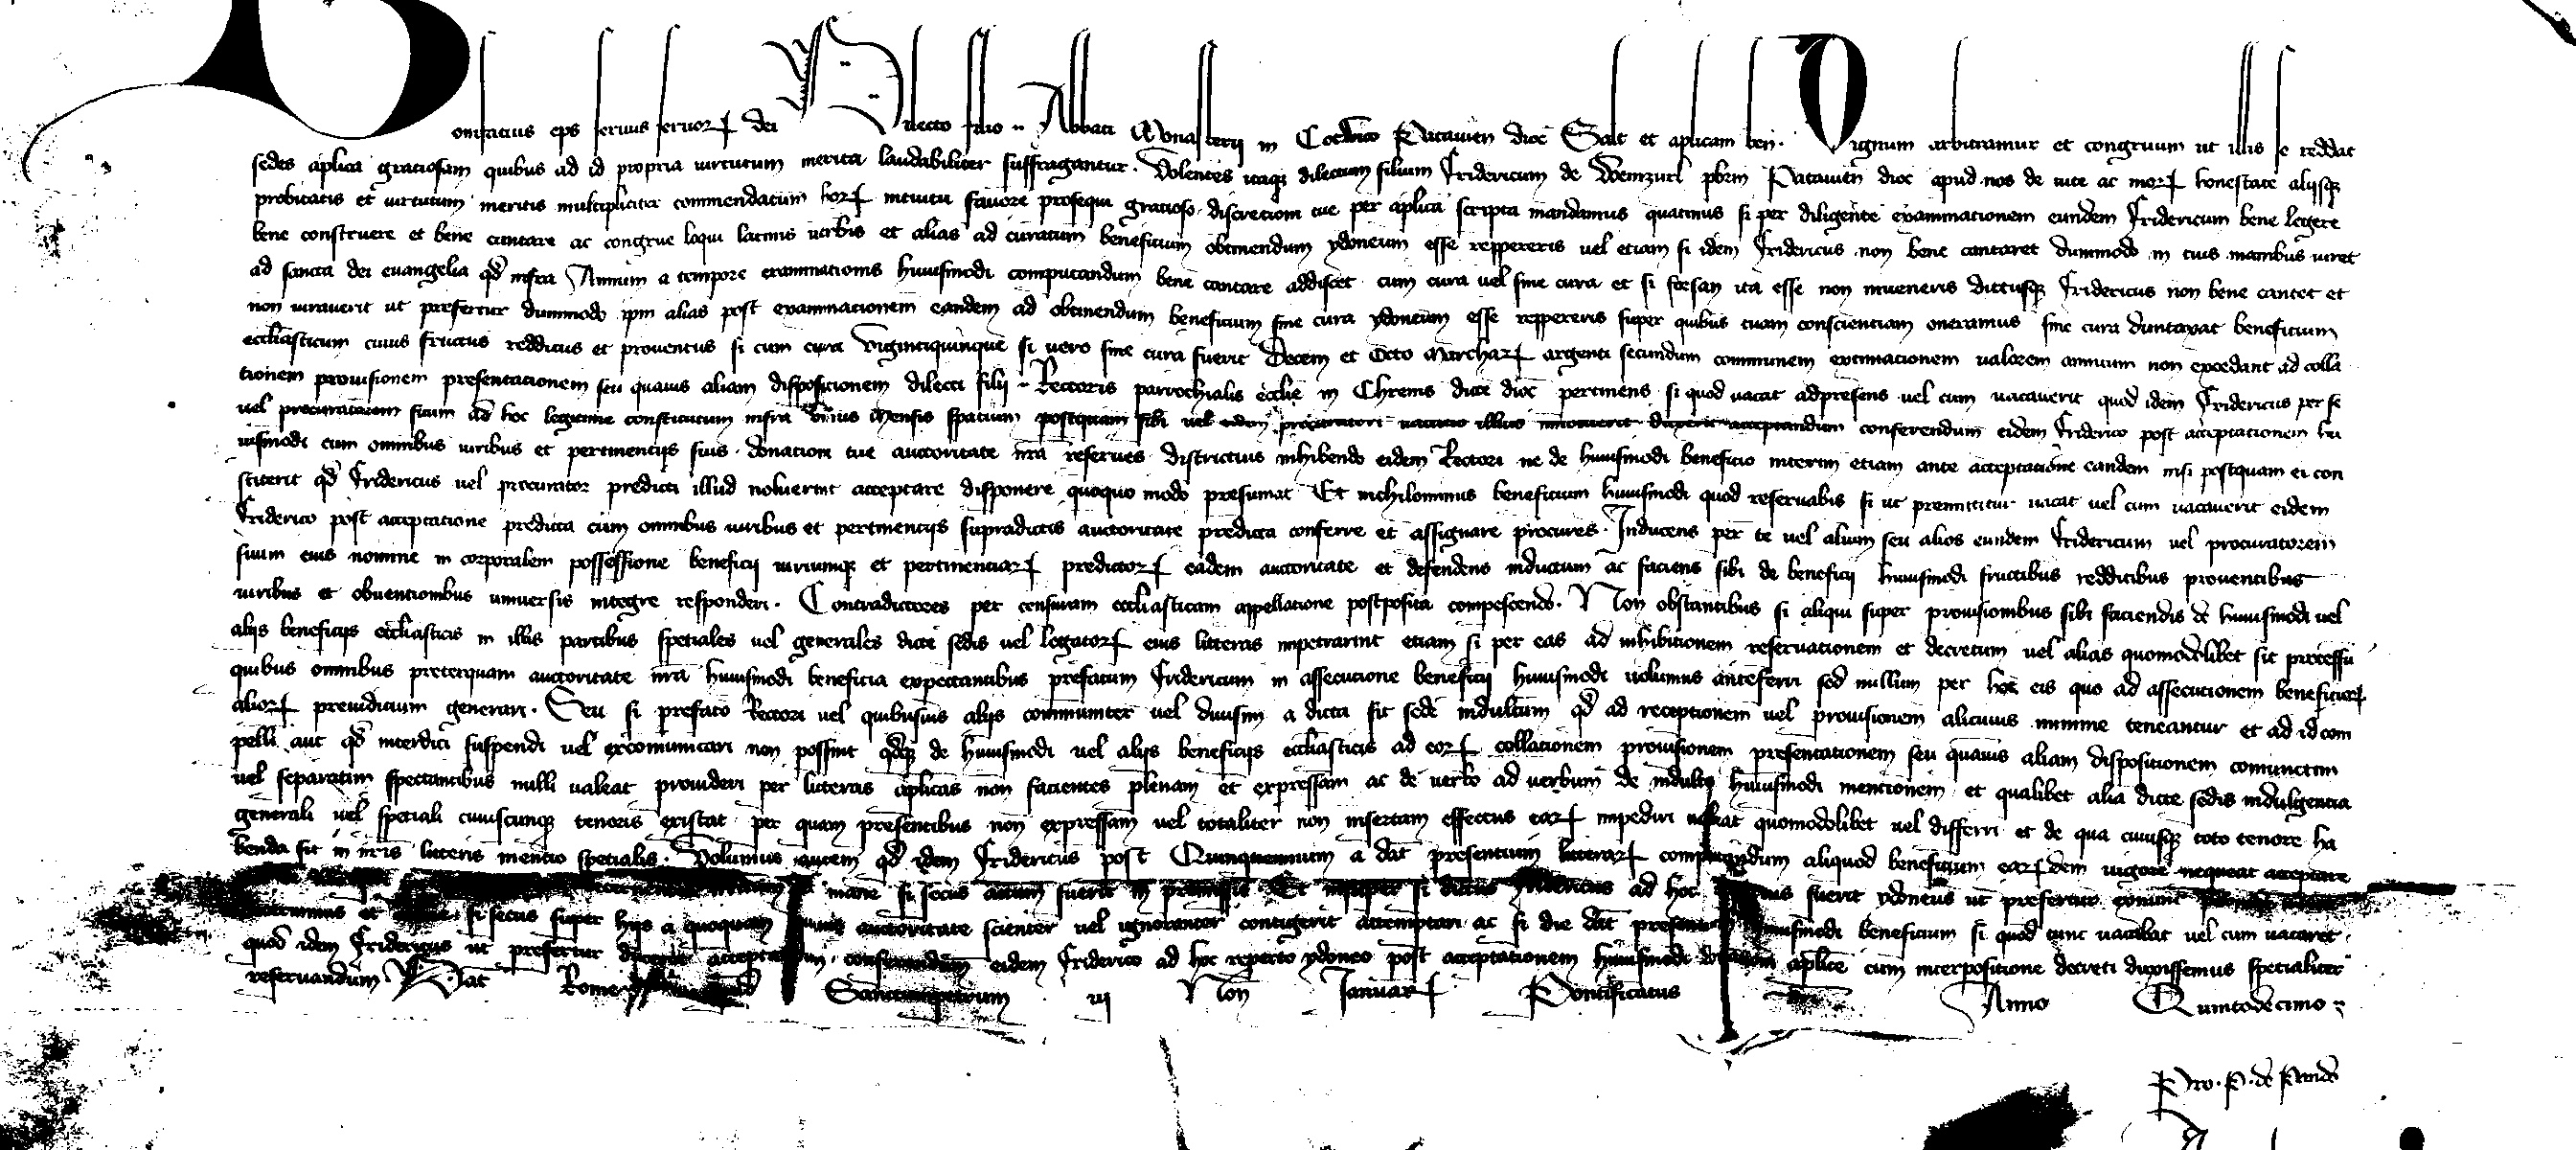 Bonifacius eps seruus seruor dei Dilecto filio Abbati Monasterii in Cotwico Patauien dioc Salt et aplicam ben. Dignum arbitramur et congruum ut illis se reddat
sedes aplica gratiosam quibus ad id propria uirtutum merita laudabiliter suffragantur. Volentes itaqz dilectum filium Fridericum de Wemzurl pbrm Patauien dioc apud nos de uite ac mor honestate aliisqz
probitatis et uirtutum meritis multipliciter commendatum hor intuitu fauore prosequi gratioso discretioni tue per aplica scripta mandamus quatinus si per diligente examinationem eundem Fridericum bene legere
bene construere et bene cantare ac congrue loqui latinis uerbis et alias ad curatum beneficium obtinendum ydoneum esse reppereris uel etiam si idem Fridericus non bene cantaret dummodo in tuis manibus iuret
ad sancta dei euangelia qd infra Annum a tempore examinationis huiusmodi computandum bene cantare addiscet cum cura uel sine cura et si forsan ita esse non inueneris dictusqz Fridericus non bene cantet et
non iurauerit ut prefertur dummodo ipm alias post examinationem eandem ad obtinendum beneficium sine cura ydoneum esse reppereris super quibus tuam conscientiam oneramus sine cura duntaxat beneficium
ecclesiasticum cuius fructus redditus et prouentus si cum cura Vigintiquinque si uero sine cura fuerit Decem et Octo Marchar argenti secundum communem extimationem ualorem annuum non excedant ad colla
tionem prouisionem presentationem seu quamuis aliam dispositionem dilecti filii Rectoris parrochialis ecclie in Chrems dicte dioc pertinens si quod uacat adpresens uel cum uacauerit quod idem Fridericus per se
uel procuratorem suum ad hoc legitime constitutum infra unius mensis spatium postquam sibi uel eidem procuratori uacatio illius innotuerit duxerit acceptandum conferendum eidem Friderico post acceptationem hu
iusmodi cum omnibus iuribus et pertinentiis suis donationi tue auctoritate nra reserues districtius inhibendo eidem Rectori ne de huiusmodi beneficio interim etiam ante acceptatione eandem nisi postquam ei con
stiterit qd Fridericus uel procurator predicti illud noluerint acceptare disponere quoquo modo presumat Et nichilominus beneficium huiusmodi quod reseruabis si ut premittitur uacat uel cum uacauerit eidem
Friderico post acceptatione predicta cum omnibus iuribus et pertinentiis supradictis auctoritate predicta conferre et assignare procures. Inducens per te uel alium seu alios eundem Fridericum uel procuratorem
suum eius nomine in corporalem possessione beneficii iuriumqz et pertinentiar predictor eadem auctoritate et defendens inductum ac faciens sibi de beneficii huiusmodi fructibus redditibus prouentibus
iuribus et obuentionibus uniuersis integre responderi. Contradictores per censuram ecclesiasticam appellatione postposita compescendo. Non obstantibus si aliqui super prouisionibus sibi faciendis de huiusmodi uel
aliis beneficiis ecclesiasticis in illis partibus speciales uel generales dicte sedis uel legator eius litteras impetrarint etiam si per eas ad inhibitionem reseruationem et decretum uel alias quomodolibet sit processu
quibus omnibus preterquam auctoritate nra huiusmodi beneficia expectantibus prefatum Fridericum in assecutione beneficii huiusmodi uolumus anteferri sed nullum per hoc eis quo ad assecutionem beneficior
alior preiudicium generari. Seu si prefato Rectori uel quibusuis aliis communiter uel diuisim a dicta sit sede indultum qd ad receptionem uel prouisionem alicuius minime teneantur et ad id com
pelli aut qd interdici suspendi uel excomunicari non possint qdqz de huiusmodi uel aliis beneficiis ecclesiasticis ad eor collationem prouisionem presentationem seu quamuis aliam dispositionem coniunctim
uel separatim spectantibus nulli ualeat prouideri per litteras aplicas non facientes plenam et expressam ac de uerbo ad uerbum de indulto huiusmodi mentionem et qualibet alia dicte sedis indulgentia
generali uel speciali cuiuscunqz tenoris existat per quam presentibus non expressam uel totaliter non insertam effectus ear impediri ualeat quomodolibet uel differri et de qua cuiusqz toto tenore ha
benda sit in nris litteris mentio specialis. Volumus autem qd idem Fridericus post Quinquennium a dat presentium litterar computandum aliquod beneficium eardem uigore nequeat acceptare
inane si secus actum fuerit in premissis Et insuper si dictus Fridericus ad hoc fuerit ydoneus ut prefertur exnunc
et si secus super hiis a quoquam quauis auctoritate scienter uel ignoranter contigerit attemptari ac si die dat presentium huiusmodi beneficium si quod tunc uacabat uel cum uacaret
quod idem Fridericus ut prefertur duxerit acceptandum conferendum eidem Friderico ad hoc reperto ydoneo post acceptationem huiusmodi donationi aplice cum interpositione decreti duxissemus specialiter
reseruandum Dat Rome Sanctumpetrum iij Non Januar Pontificatus nri Anno Quintodecimo
Pro. P. de